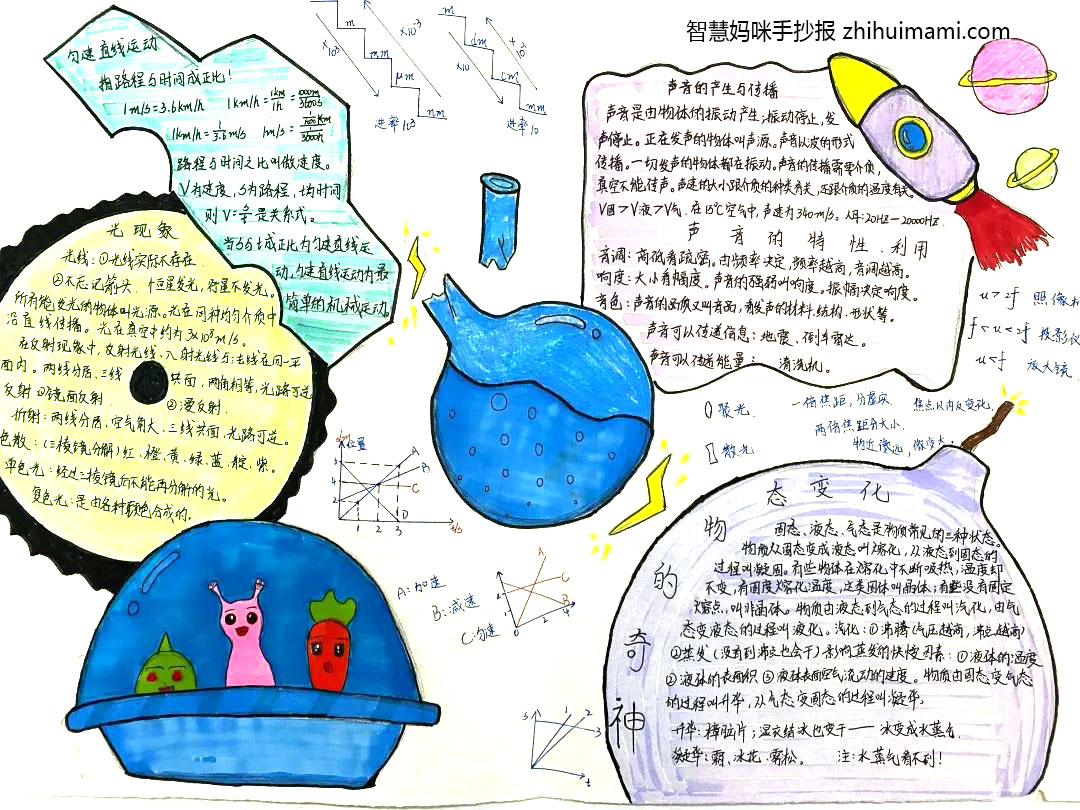 智慧妈咪手抄报 zhihuimami.com
匀速直线运动
指路程与时间成正比!
1m/s=3.6km/h 1km/h=1km/1h=1000m/3600s
1km/h=1/3.6m/s
路程与时间之比叫做速度。
V为速度,S为路程,t为时间
则V=S/t是关系式。
当S与t成正比为匀速直线运
动,匀速直线运动为最
简单的机械运动。
m
mm
μm
nm
×10³
×10⁻³
进率10³
m
dm
cm
mm
×10
进率10
声音的产生与传播
声音是由物体的振动产生;振动停止,发
声停止。正在发声的物体叫声源。声音以波的形式
传播。一切发声的物体都在振动。声音的传播需要介质,
真空不能传声。声速的大小跟介质的种类有关,还跟介质的温度有关。
V固>V液>V气. 在15℃空气中,声速为340m/s。人耳:20HZ—20000HZ.
声音的特性、利用
音调:高低看疏密。由频率决定,频率越高,音调越高。
响度:大小看幅度。声音的强弱叫响度。振幅决定响度。
音色:声音的品质又叫音品,看发声的材料、结构、形状等。
声音可以传递信息:地震、倒车雷达。
声音可以传递能量: 清洗机。
u>2f 照像机
f<u<2f 投影仪
u<f 放大镜
聚光
散光
一倍焦距,分虚实
焦点以内反变化.
两倍焦距分大小
物近像远 像变大。
光现象
光线:①光线实际不存在
②不忘记箭头 恒星发光,行星不发光。
所有能发光的物体叫光源。光在同种均匀介质中
沿直线传播。光在真空中约为3×10⁸m/s。
在反射现象中,反射光线、入射光线与法线在同一平
面内。两线分居、三线共面,两角相等,光路可逆
反射①镜面反射 ②漫反射
折射:两线分居,空气角大、三线共面,光路可逆。
色散:(三棱镜分解)红、橙、黄、绿、蓝、靛、紫。
单色光:经过三棱镜后不能再分解的光。
复色光:是由各种颜色合成的。
位置
A
A
C
D
1 2 3
A:加速
B:减速
C:匀速
A
C
B
0 2 4
S
1 2
3
t
物的奇神
态变化
固态、液态、气态是物质常见的三种状态。
物质从固态变成液态叫熔化,从液态到固态的
过程叫凝固。有些物体在熔化中不断吸热,温度却
不变,有固度熔化温度,这类固体叫晶体;有些没有固定
熔点,叫非晶体。物质由液态到气态的过程叫汽化,由气
态变液态的过程叫液化。汽化:①沸腾(气压越高,沸点越高)
②蒸发(没有到沸点也会干)影响蒸发的快慢因素:①液体的温度
②液体的表面积③液体表面空气流动的速度。物质由固态变气态
的过程叫升华,从气态变固态的过程叫凝华。
升华:樟脑片;湿衣结冰也变干——冰变成水蒸气.
凝华:霜、冰花、雾松。 注:水蒸气看不到!